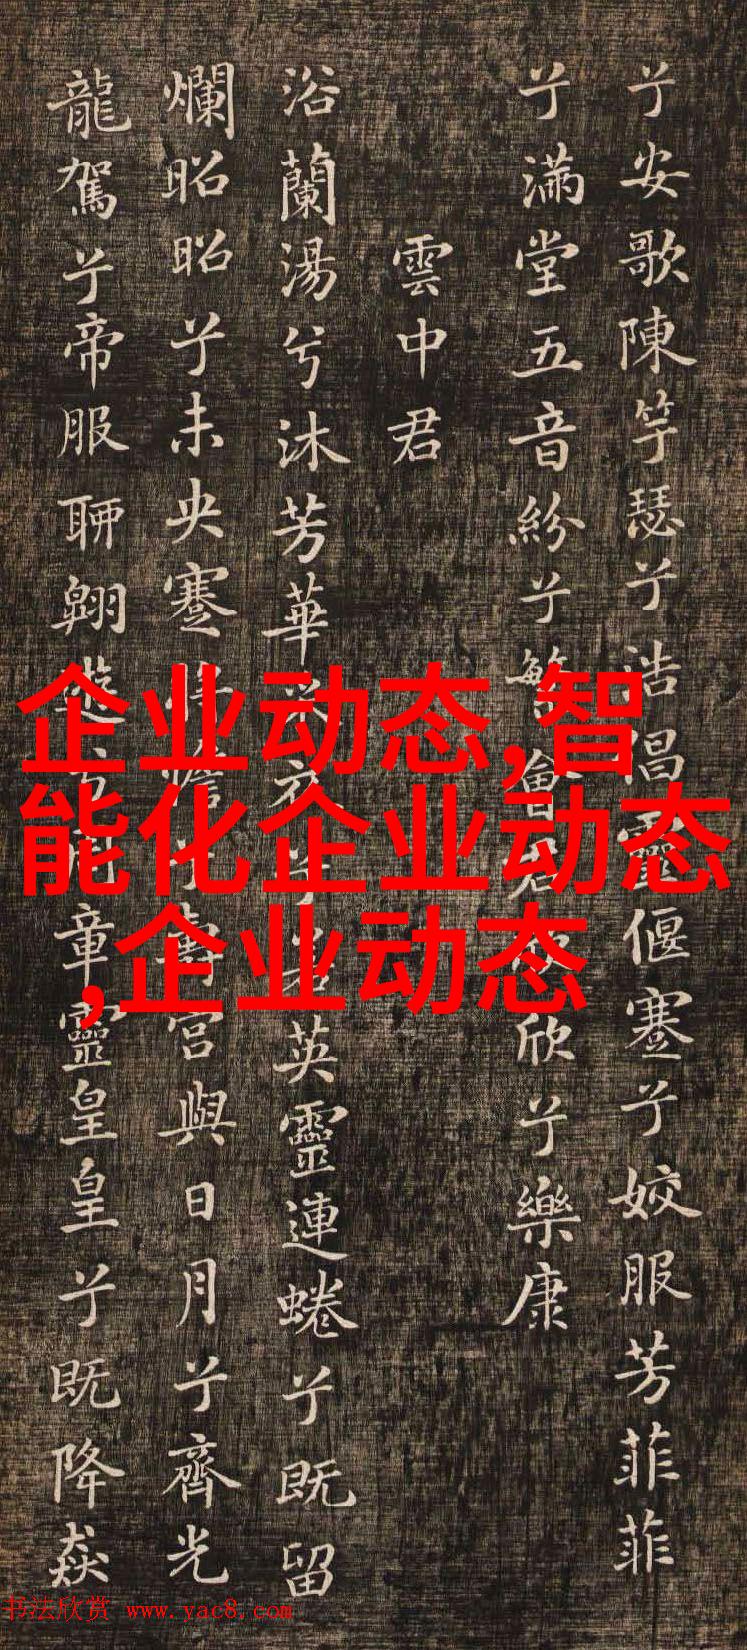 兮安歌陳竽瑟兮浩倡靈偃蹇兮姣服芳菲菲
兮滿堂五音紛兮繁會君欣欣兮樂康
雲中君
浴蘭湯兮沐芳華衣兮若英靈連蜷兮既留
爛昭昭兮未央蹇憺兮壽宮與日月兮齊光
龍駕兮帝服聊翱遊周章靈皇皇兮既降猋
企业动态,智
能化企业动态
,企业动态
书法欣赏 www.yac8.com